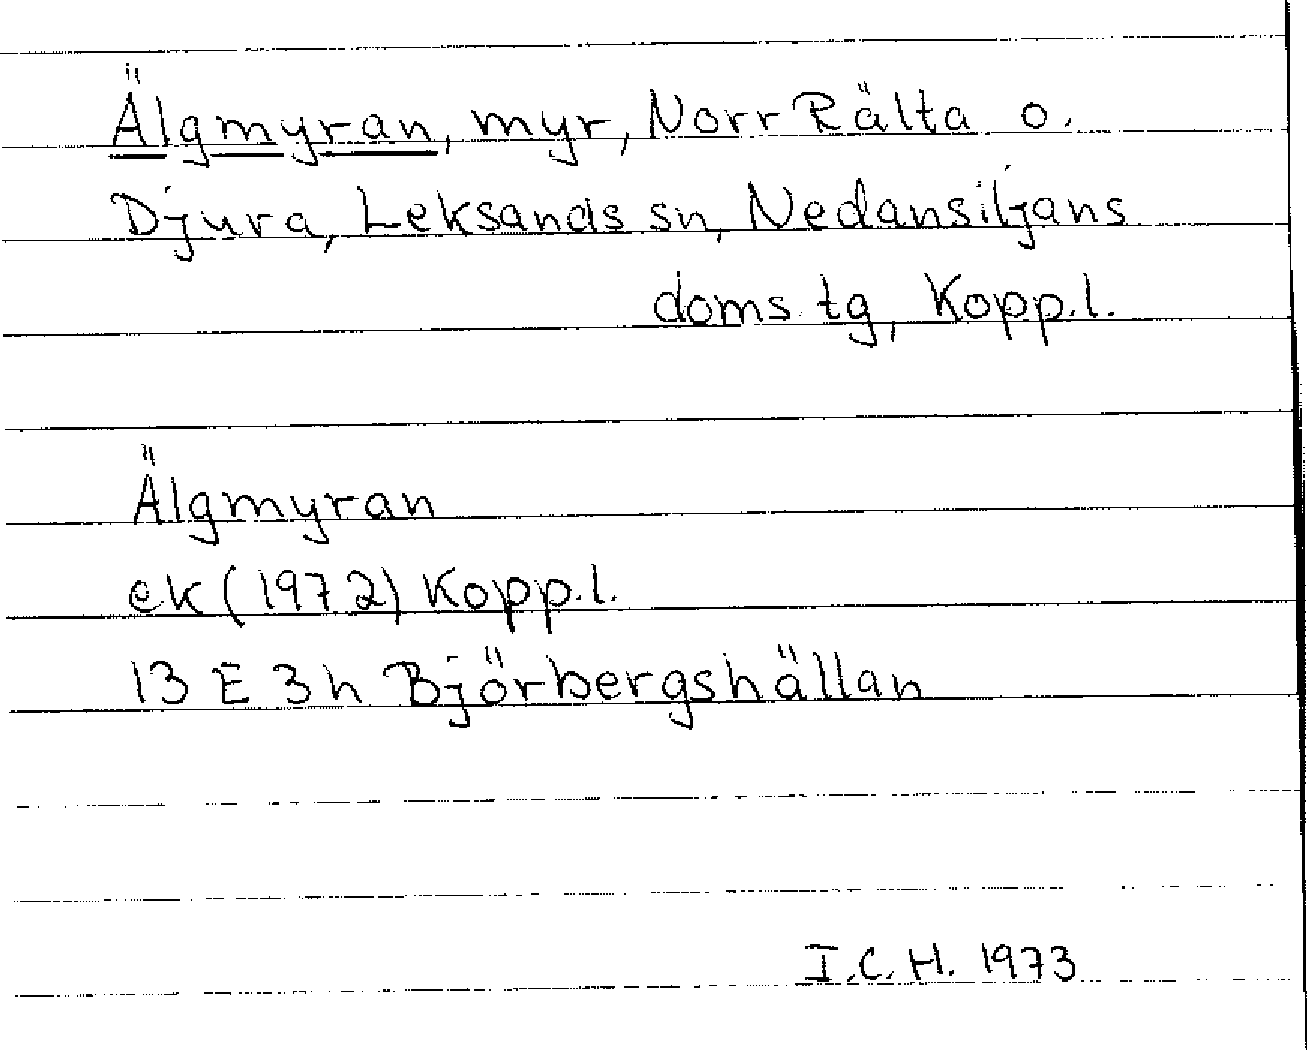 Älgmyran, myr, Norr Rälta o.
Djura, Leksands sn, Nedansiljans
doms. tg, Kopp.l.
Älgmyran
ek (1972) Kopp.l.
13 E 3h Björbergshällan
I.C.H. 1973